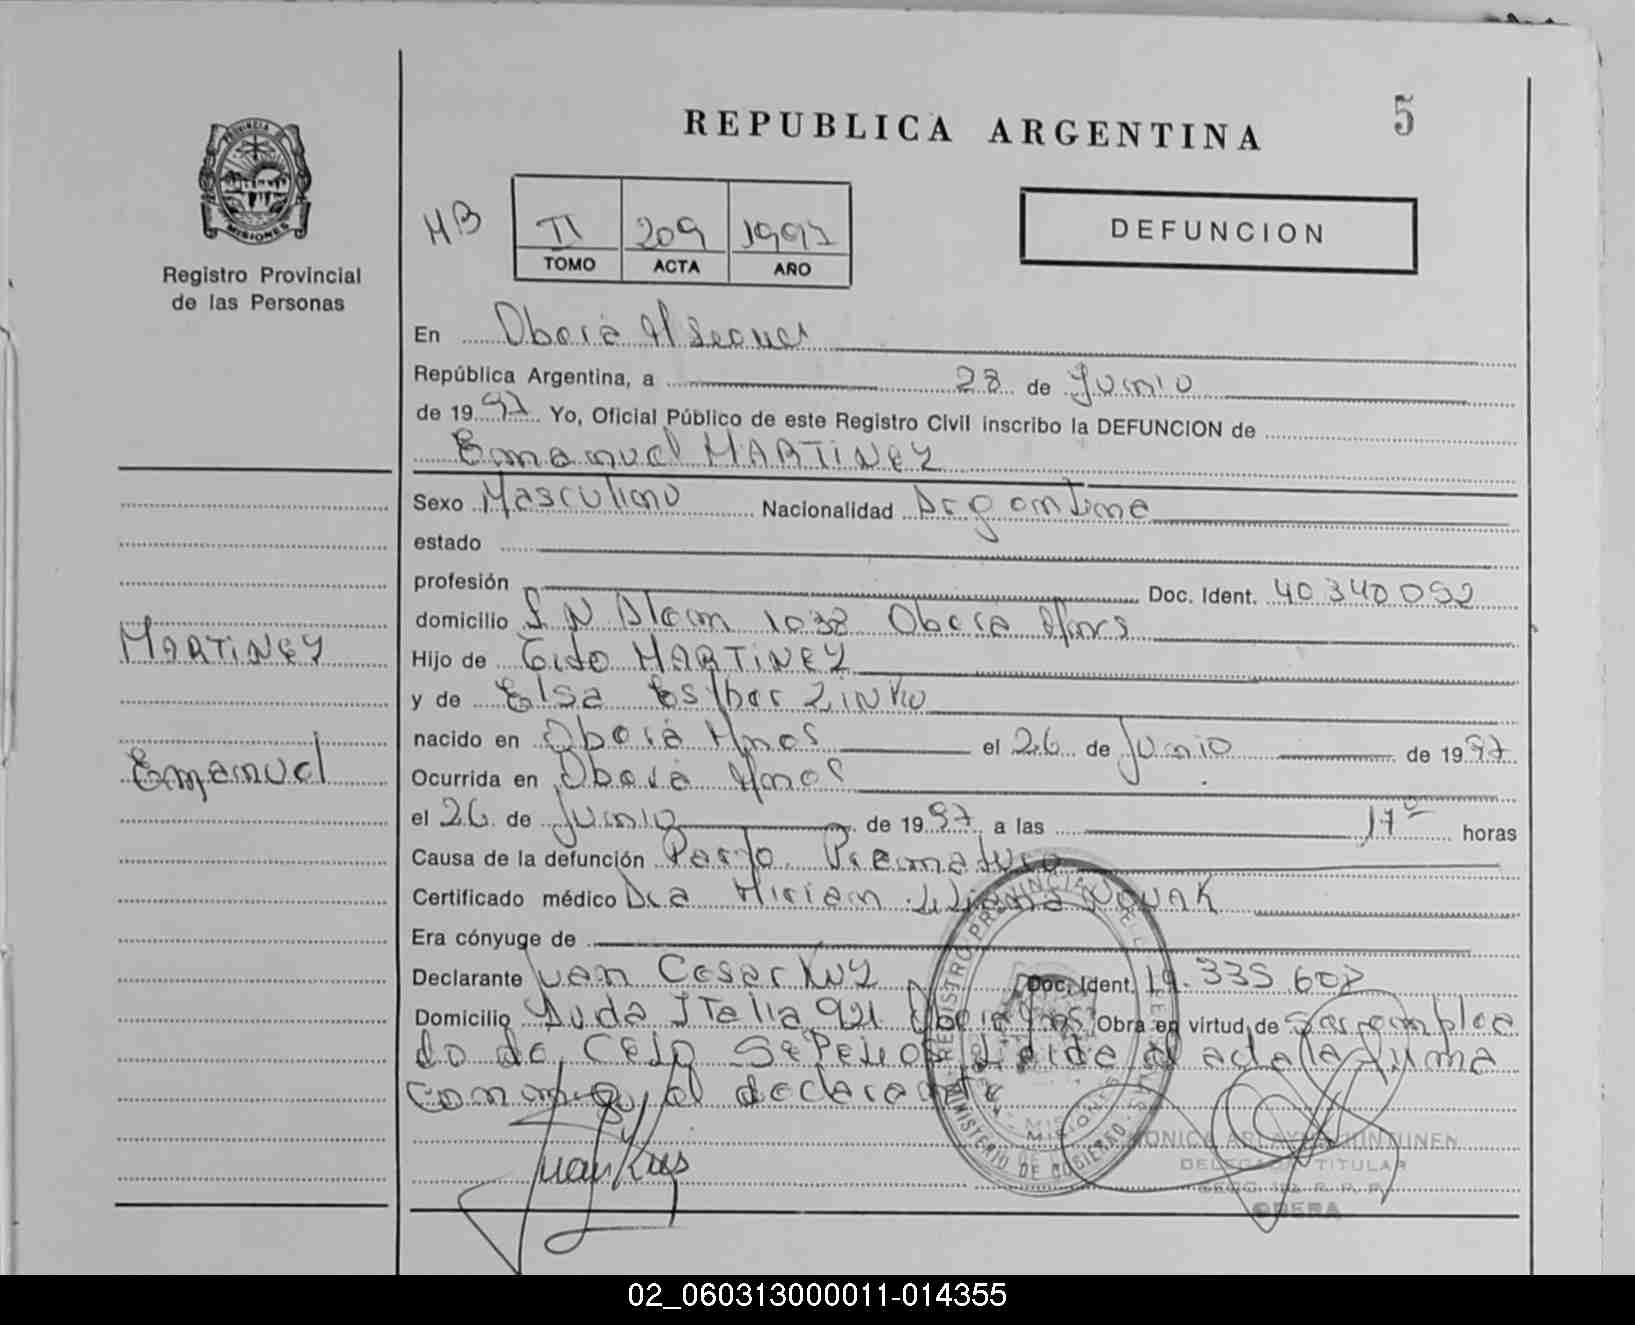 5
REPUBLICA ARGENTINA
PROVINCIA DE
MISIONES
Registro Provincial
de las Personas
HB
II 209 1997
TOMO ACTA AÑO
DEFUNCION
En Oberá
República Argentina, a 28 de Junio
de 1997 Yo, Oficial Público de este Registro Civil inscribo la DEFUNCION de
Emanuel MARTINEZ
Sexo Masculino Nacionalidad Argentina
estado
profesión Doc. Ident. 40 340 092
domicilio L N Alem 1038 Oberá Mnes
MARTINEZ
Hijo de Tido MARTINEZ
y de Elsa Esther
nacido en Oberá Mnes el 26 de Junio de 1997
Emanuel
Ocurrida en Oberá Mnes
el 26 de Junio de 1997 a las 17 horas
Causa de la defunción Parto Prematuro
Certificado médico Dra Miriam Liliana NOVAK
Era cónyuge de
Declarante Juan Cesar Doc. Ident. 19.335.607
Domicilio Avda Italia 921 Oberá Mnes Obra en virtud de Ser emplea
do de CELO Sepelios Leida el acta la firma
conmigo el declarante
REGISTRO PROVINCIAL DE LAS
MINISTERIO DE GOBIERNO
MISIONES
MONICA
DELEGADA TITULAR
R. P. P.
OBERA
02_060313000011-014355